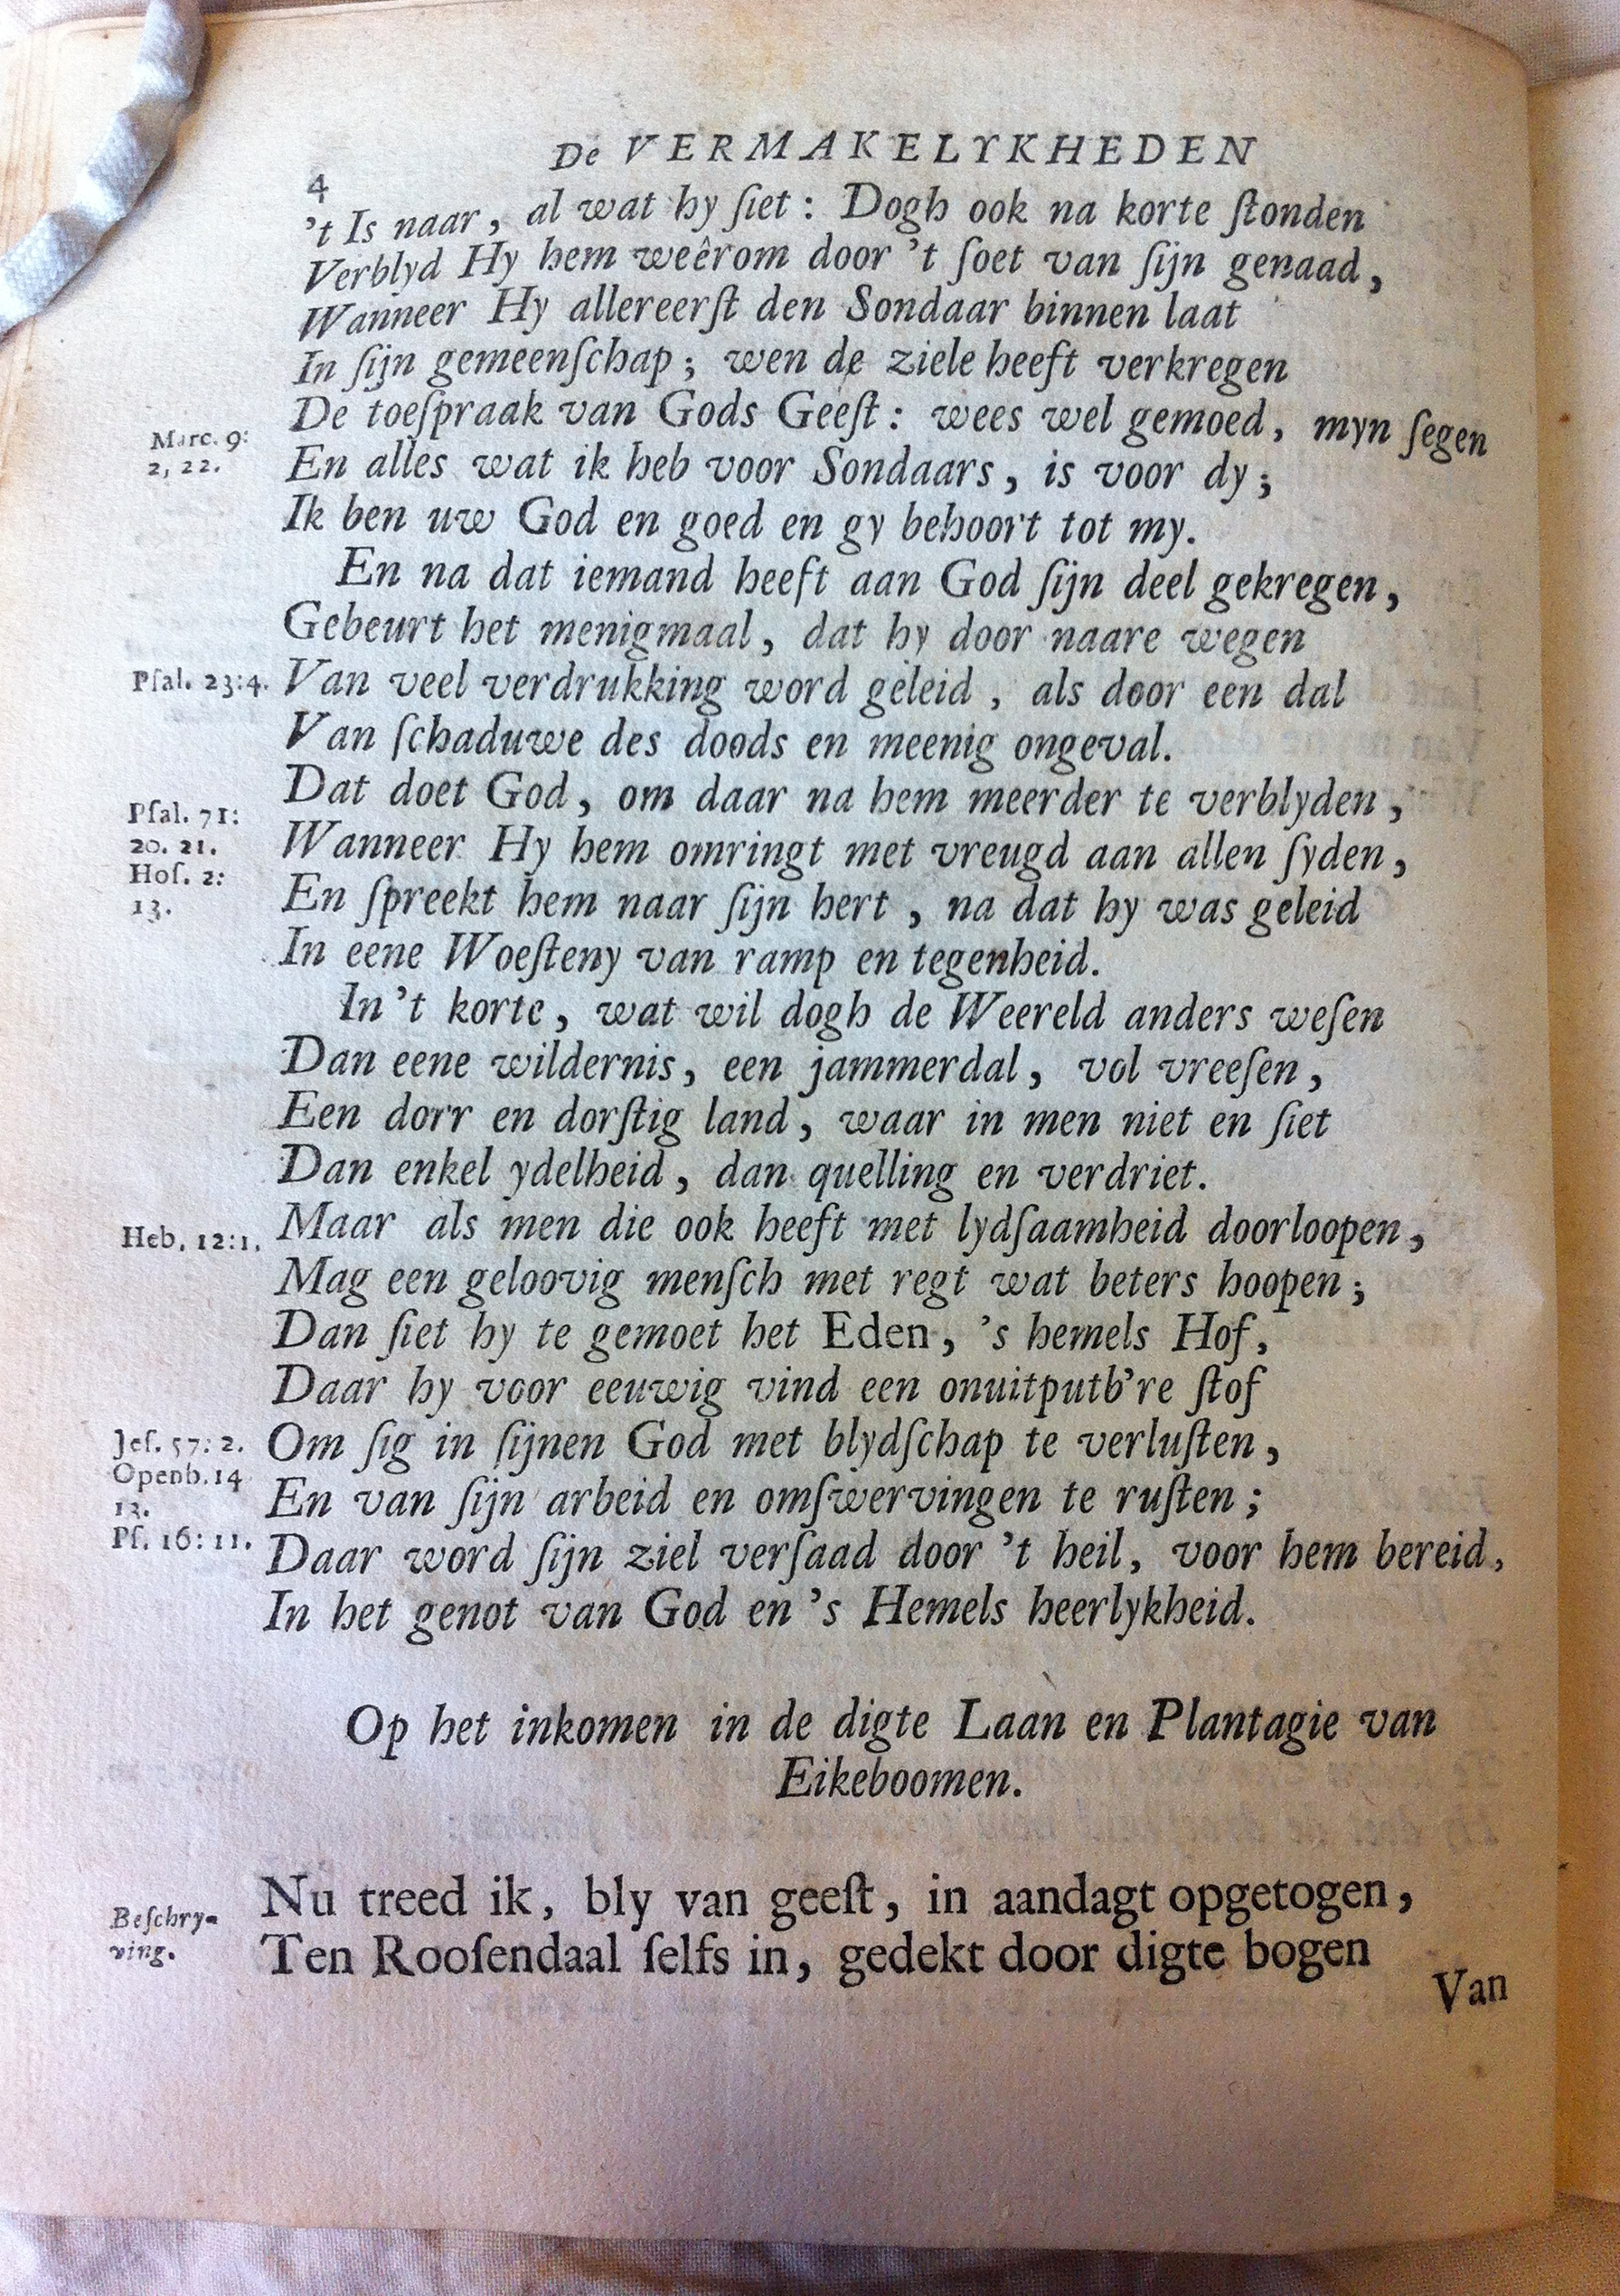 De VERMAKELYKHEDEN
4
't Is naar, al wat hy ſiet: Dogh ook na korte ſtonden
Verblyd Hy hem weêrom door 't ſoet van ſijn genaad,
Wanneer Hy allereerſt den Sondaar binnen laat
In ſijn gemeenſchap; wen de ziele heeft verkregen
De toeſpraak van Gods Geeſt: wees wel gemoed, myn ſegen
Marc. 9:
2, 22.
En alles wat ik heb voor Sondaars, is voor dy;
Ik ben uw God en goed en gy behoort tot my.
En na dat iemand heeft aan God ſijn deel gekregen,
Gebeurt het menigmaal, dat hy door naare wegen
Pſal. 23:4. Van veel verdrukking word geleid, als door een dal
Van ſchaduwe des doods en meenig ongeval.
Dat doet God, om daar na hem meerder te verblyden,
Pſal. 71:
20. 21.
Wanneer Hy hem omringt met vreugd aan allen ſyden,
Hoſ. 2:
13.
En ſpreekt hem naar ſijn hert, na dat hy was geleid
In eene Woeſteny van ramp en tegenheid.
In 't korte, wat wil dogh de Weereld anders weſen
Dan eene wildernis, een jammerdal, vol vreeſen,
Een dorr en dorſtig land, waar in men niet en ſiet
Dan enkel ydelheid, dan quelling en verdriet.
Heb. 12:1. Maar als men die ook heeft met lydſaamheid doorloopen,
Mag een geloovig menſch met regt wat beters hoopen;
Dan ſiet hy te gemoet het Eden, 's hemels Hof,
Daar hy voor eeuwig vind een onuitputb're ſtof
Jeſ. 57: 2. Om ſig in ſijnen God met blydſchap te verluſten,
Openb. 14
13.
En van ſijn arbeid en omſwervingen te ruſten;
Pſ. 16: 11. Daar word ſijn ziel verſaad door 't heil, voor hem bereid,
In het genot van God en 's Hemels heerlykheid.
Op het inkomen in de digte Laan en Plantagie van
Eikeboomen.
Beſchry-
ving.
Nu treed ik, bly van geeſt, in aandagt opgetogen,
Ten Rooſendaal ſelfs in, gedekt door digte bogen
Van